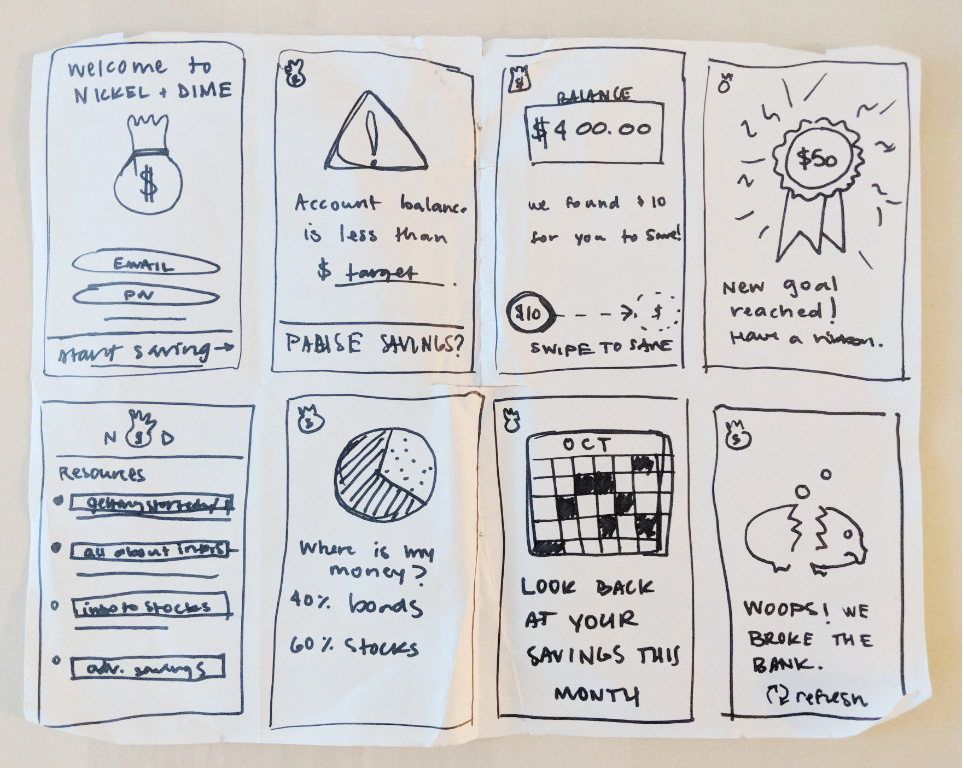 Welcome to
NICKEL + DIME
$
EMAIL
PIN
start saving
!
Account balance
is less than
$ target.
PAUSE SAVINGS?
$
BALANCE
$400.00
we found $10
for you to save!
$10
$
SWIPE TO SAVE
$50
New goal
reached!
Have a ribbon.
N $ D
Resources
getting started
all about
intro to stocks
adv. savings
$
Where is my
money?
40% bonds
60% stocks
OCT
LOOK BACK
AT YOUR
SAVINGS THIS
MONTH
$
WOOPS! WE
BROKE THE
BANK.
refresh